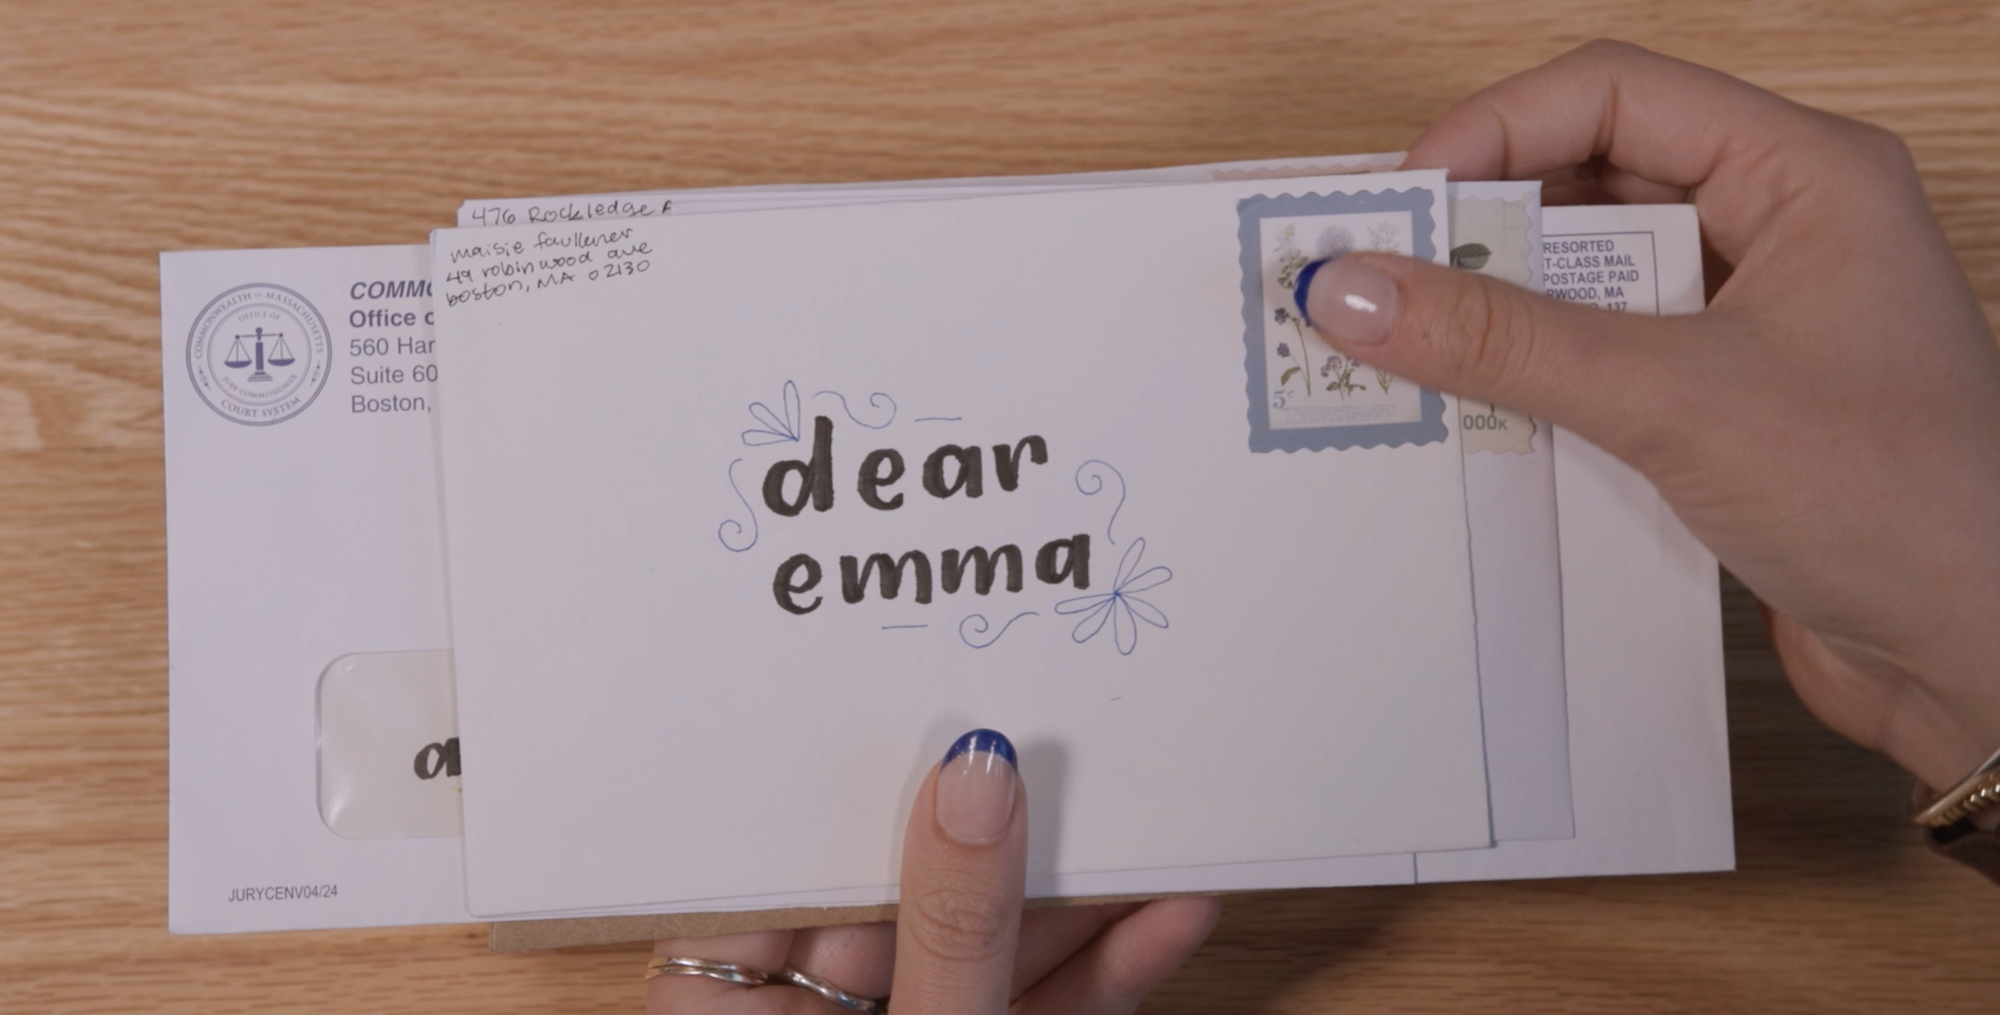 476 Rockledge
maisie faulkner
49 robinwood ave
boston, MA 02130
COMMONWEALTH OF MASSACHUSETTS
OFFICE OF
JURY COMMISSIONER
COURT SYSTEM
COMMO
Office o
560 Har
Suite 60
Boston,
RESORTED
T-CLASS MAIL
POSTAGE PAID
RWOOD, MA
137
5c
000K
dear
emma
a
JURYCENV04/24